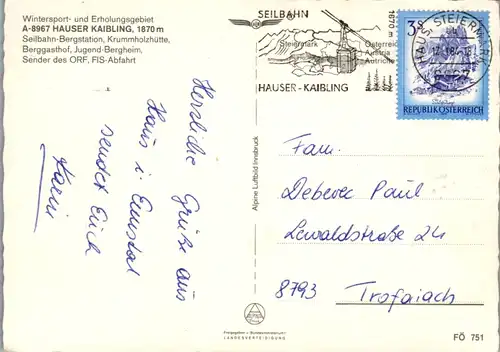 Wintersport- und Erholungsgebiet
A-8967 HAUSER KAIBLING, 1870 m
Seilbahn-Bergstation, Krummholzhütte,
Berggasthof, Jugend-Bergheim,
Sender des ORF, FIS-Abfahrt
SEILBAHN
1870 m
Steiermark
Österreich
Austria
Autriche
HAUSER-KAIBLING
HAUS, STEIERMARK
8967
3 S
REPUBLIK ÖSTERREICH
Herzliche Grüße aus
Haus i. Ennstal
sendet Euch
Alpine Luftbild Innsbruck
Fam.
Debevec Paul
8793 Trofaiach
Freigegeben v. Bundesministerium f.
LANDESVERTEIDIGUNG
FÖ 751